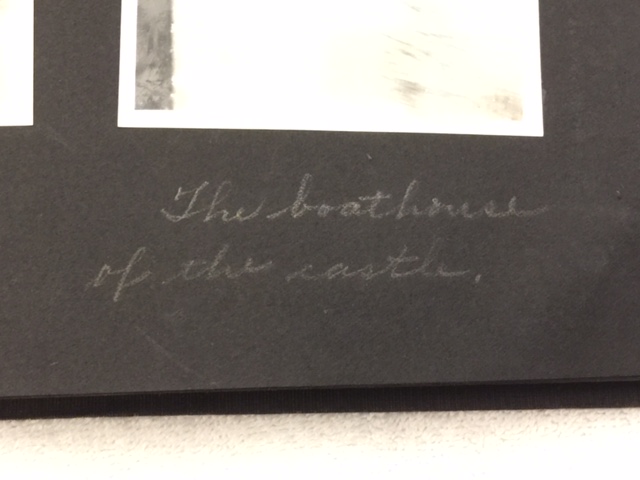 The boathouse
of the castle.